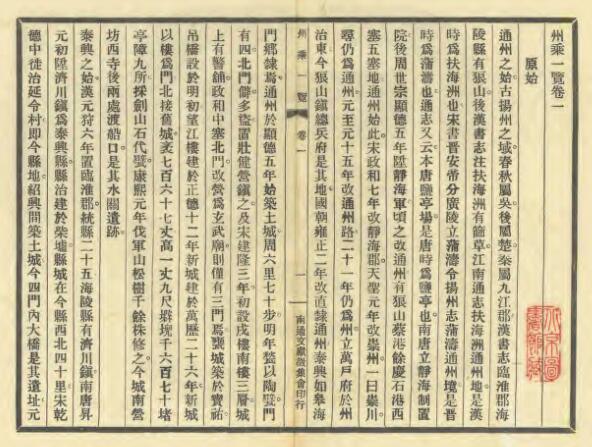 州乘一覽卷一
原始
通州之始古揚州之域春秋屬吳後屬楚秦屬九江郡漢書志臨淮郡海
陵縣有狼山後漢書志注扶海洲有簡草江南通志扶海洲通州地是漢
時爲扶海洲也宋書晋安帝分廣陵立蒲濤令揚州志蒲濤通州境是晋
時爲蒲濤也通志又云本唐鹽亭場是唐時爲鹽亭也南唐立靜海制置
院後周世宗顯德五年陞靜海軍頃之改通州有狼山蔡港餘慶石港西
塞五寨地通州始此宋政和七年改靜海郡天聖元年改崇州一曰崇川
尋仍爲通州元至元十五年改通州路二十一年仍爲州立萬戶府於州
治東今狼山鎭總兵府是其地國朝雍正二年改直隸通州泰興如皋海
州乘一覽
卷一
一
南通文獻徵集會印行
門鄉隸焉通州於顯德五年始築土城周六里七十步明年甃以陶甓門
有四北門儕多盜置壯健營鎭之及宋建隆三年初設戌樓南樓三層城
上有警舖政和中塞北門改營爲玄武廟則僅有三門焉甕城築於寶祐
吊橋設於明初望江樓建於正德十二年新城建於萬歷二十六年新城
以樓爲門北接舊城袤七百六十七丈高一丈九尺堞境千六百七十堵
亭障九所採劍山石代甓康熙元年伐軍山松樹千餘株修之今城南營
坊西寺後兩處渡船口是其水關遺跡
泰興之始漢元狩六年置臨淮郡統縣二十五海陵縣有濟川鎭南唐昇
元初陞濟川鎭爲泰興縣縣治建於柴墟縣城在今縣西北四十里宋乾
德中徙治延令村即今縣地紹興間築土城今四門內大橋是其遺址元